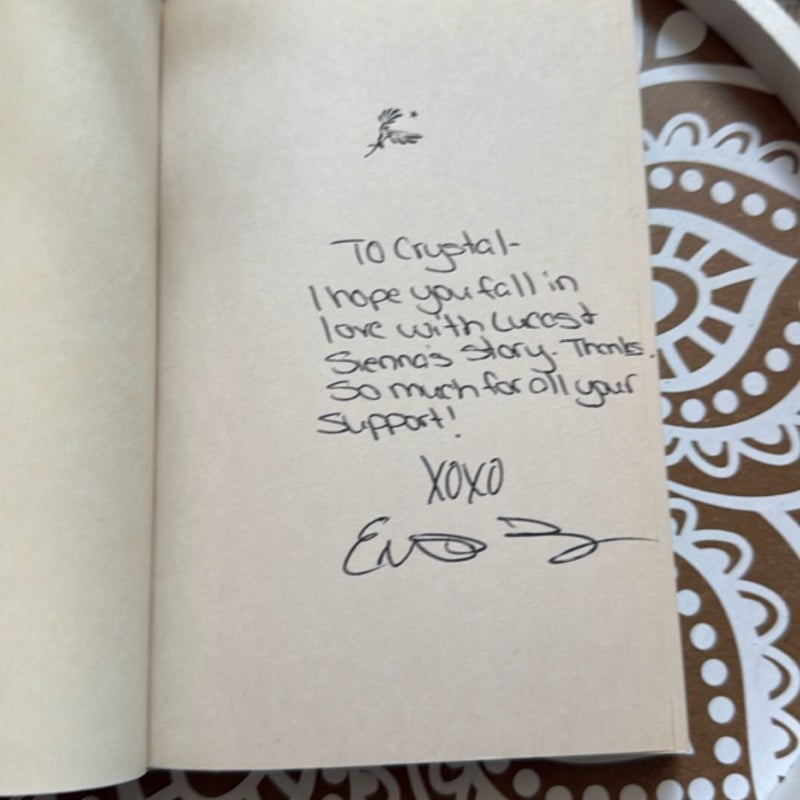 To Crystal-
I hope you fall in
love with Lucas &
Sienna's story. Thanks
so much for all your
support!
XOXO